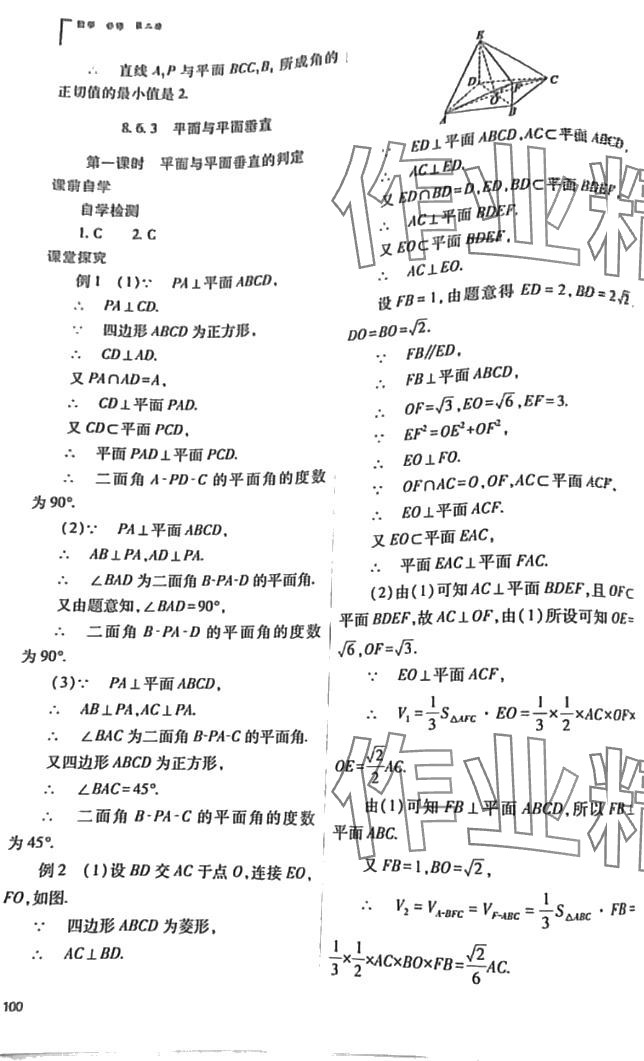 数学 必修 第二册
∴ 直线 A₁P 与平面 BCC₁B₁ 所成角的
正切值的最小值是 2.
8.6.3 平面与平面垂直
第一课时 平面与平面垂直的判定
课前自学
自学检测
1. C 2. C
课堂探究
例1 (1)∵ PA⊥平面 ABCD,
∴ PA⊥CD.
∵ 四边形 ABCD 为正方形,
∴ CD⊥AD.
又 PA∩AD=A,
∴ CD⊥平面 PAD.
又 CD⊂平面 PCD,
∴ 平面 PAD⊥平面 PCD.
∴ 二面角 A-PD-C 的平面角的度数
为 90°.
(2)∵ PA⊥平面 ABCD,
∴ AB⊥PA,AD⊥PA.
∴ ∠BAD 为二面角 B-PA-D 的平面角.
又由题意知,∠BAD=90°,
∴ 二面角 B-PA-D 的平面角的度数
为 90°.
(3)∵ PA⊥平面 ABCD,
∴ AB⊥PA,AC⊥PA.
∴ ∠BAC 为二面角 B-PA-C 的平面角.
又四边形 ABCD 为正方形,
∴ ∠BAC=45°.
∴ 二面角 B-PA-C 的平面角的度数
为 45°.
例2 (1)设 BD 交 AC 于点 O,连接 EO,
FO,如图.
∵ 四边形 ABCD 为菱形,
∴ AC⊥BD.
100
E
D F C
O
A B
∵ ED⊥平面 ABCD,AC⊂平面 ABCD,
∴ AC⊥ED.
又 ED∩BD=D,ED,BD⊂平面 BDEF,
∴ AC⊥平面 BDEF.
又 EO⊂平面 BDEF,
∴ AC⊥EO.
设 FB=1,由题意得 ED=2,BD=2√2,
DO=BO=√2.
∵ FB∥ED,
∴ FB⊥平面 ABCD,
∴ OF=√3,EO=√6,EF=3.
∵ EF²=OE²+OF²,
∴ EO⊥FO.
∵ OF∩AC=O,OF,AC⊂平面 ACF,
∴ EO⊥平面 ACF.
又 EO⊂平面 EAC,
∴ 平面 EAC⊥平面 FAC.
(2)由(1)可知 AC⊥平面 BDEF,且 OF⊂
平面 BDEF,故 AC⊥OF,由(1)所设可知 OE=
√6,OF=√3.
∵ EO⊥平面 ACF,
∴ V₁=1/3 S△AFC·EO=1/3×1/2×AC×OF×
OE=√2/2 AC.
由(1)可知 FB⊥平面 ABCD,所以 FB⊥
平面 ABC.
又 FB=1,BO=√2,
∴ V₂=V_A-BFC=V_F-ABC=1/3 S△ABC·FB=
1/3×1/2×AC×BO×FB=√2/6 AC.
作业精
作业精